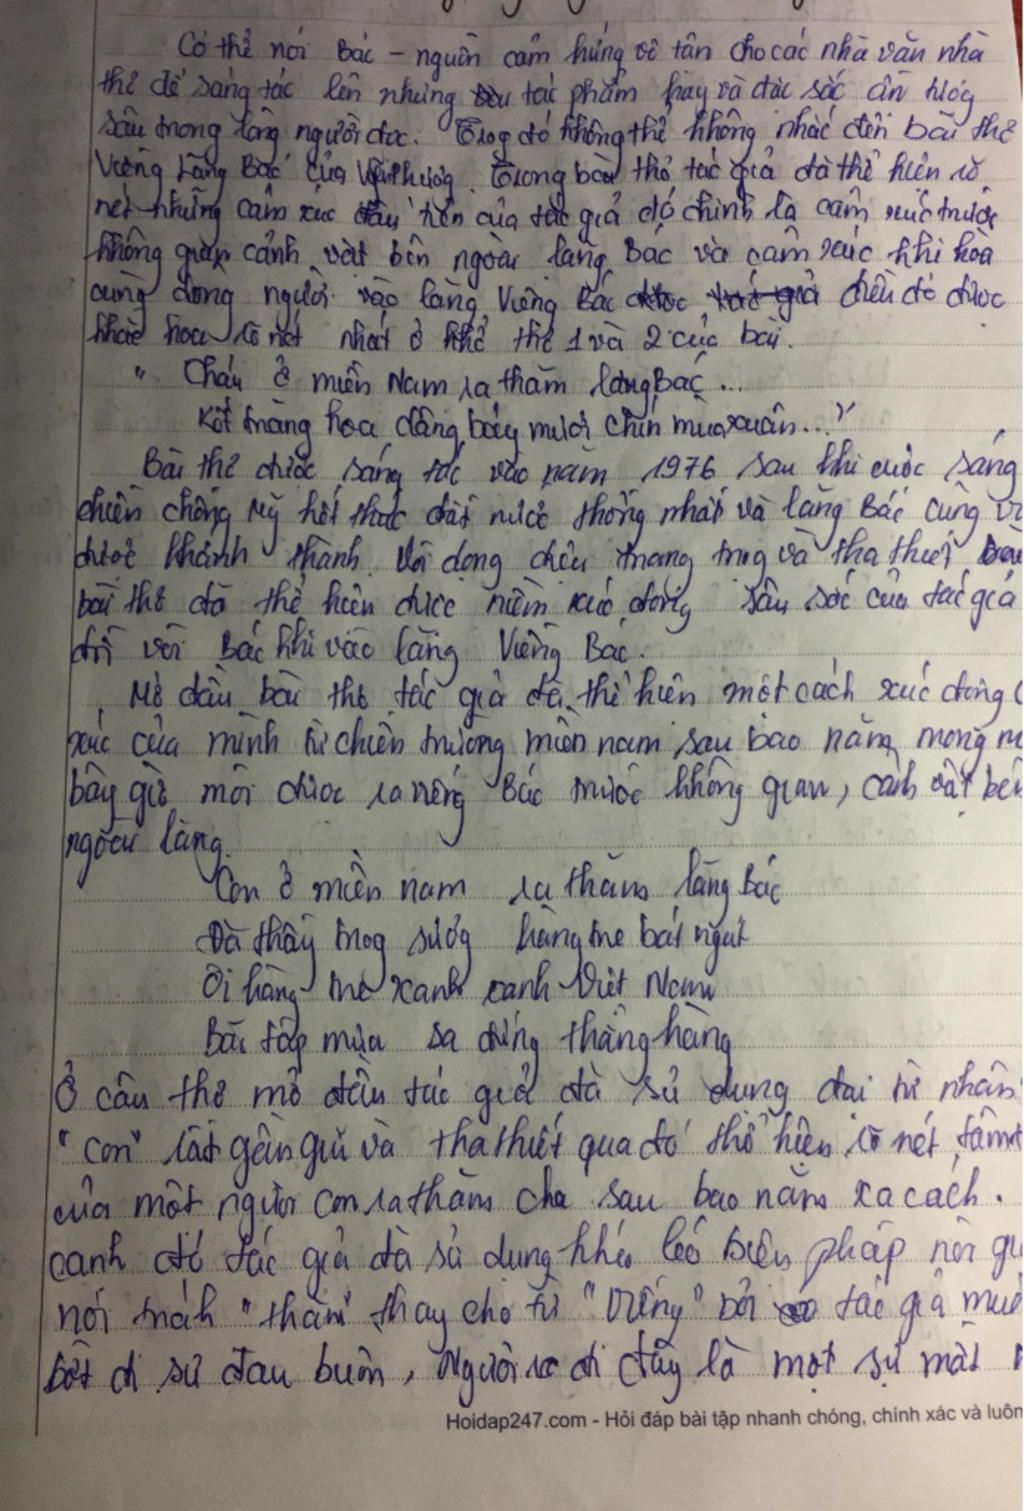 Có thể nói Bác - nguồn cảm hứng vô tận cho các nhà văn nhà
thơ để sáng tác lên những tác phẩm hay và đặc sắc ấn tượng
sâu trong lòng người đọc. Trong đó không thể không nhắc đến bài thơ
Viếng Lăng Bác của Viễn Phương. Trong bài thơ tác giả đã thể hiện rõ
nét những cảm xúc đầu tiên của tác giả đó chính là cảm xúc trước
không gian cảnh vật bên ngoài lăng Bác và cảm xúc khi hòa
cùng dòng người vào lăng Viếng Bác điều đó được
khắc họa rõ nét nhất ở khổ thơ 1 và 2 của bài.
" Cháu ở miền Nam ra thăm lăng Bác...
Kết tràng hoa dâng bảy mươi chín mùa xuân..."
Bài thơ được sáng tác vào năm 1976 sau khi cuộc sáng
chiến chống Mỹ kết thúc đất nước thống nhất và lăng Bác cũng
được khánh thành. Với dọng điệu trang trọng và tha thiết
bài thơ đã thể hiện được niềm xúc động sâu sắc của tác giả
đối với Bác khi vào lăng Viếng Bác.
Mở đầu bài thơ tác giả đã thể hiện một cách xúc động
xúc của mình từ chiến trường miền nam sau bao năm mong
bây giờ mới được ra viếng Bác trước không gian, cảnh vật bên
ngoài lăng.
Con ở miền nam ra thăm lăng Bác
Đã thấy trong sương hàng tre bát ngát
Ôi hàng tre xanh xanh Việt Nam
Bão táp mưa sa đứng thẳng hàng
Ở câu thơ mở đầu tác giả đã sử dụng đại từ nhân
"con" rất gần gũi và tha thiết qua đó thể hiện rõ nét tâm
của một người con ra thăm cha sau bao năm xa cách.
cạnh đó tác giả đã sử dụng khéo léo biện pháp nói
nói tránh "thăm" thay cho từ "Viếng" bởi tác giả
bớt đi sự đau buồn, Người ra đi đây là một sự mất
Hoidap247.com - Hỏi đáp bài tập nhanh chóng, chính xác và luôn